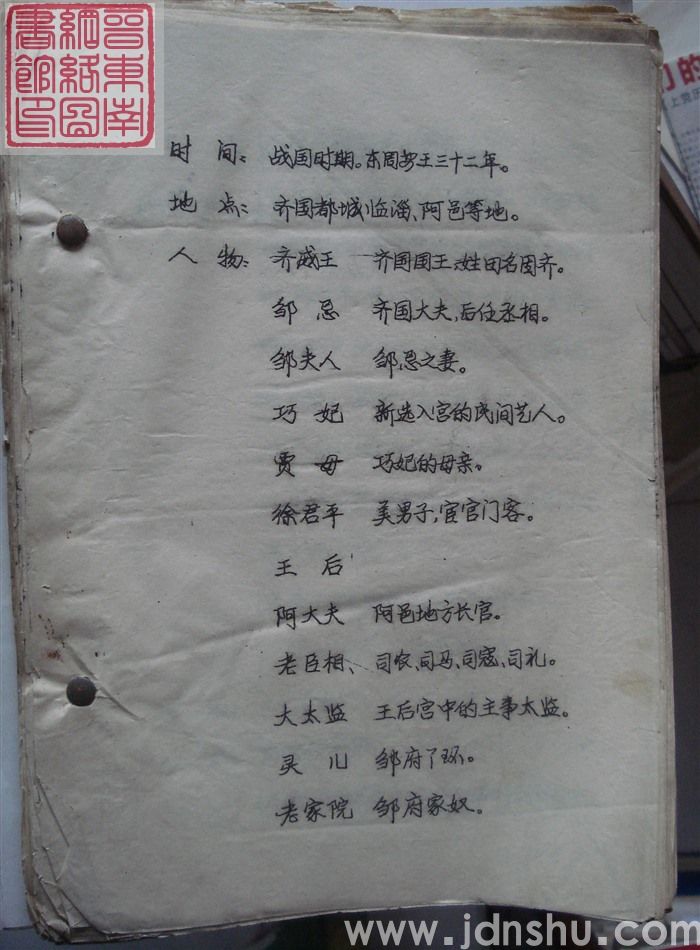 晋东南
网络图
书馆印
们的
上党
时 间: 战国时期。东周安王三十二年。
地 点: 齐国都城临淄、阿邑等地。
人 物: 齐威王 齐国国王、姓田名因齐。
邹 忌 齐国大夫,后任丞相。
邹夫人 邹忌之妻。
巧 妃 新选入宫的民间艺人。
贾 母 巧妃的母亲。
徐君平 美男子,宦官门客。
王 后
阿大夫 阿邑地方长官。
老臣相、司农、司马、司寇、司礼。
大太监 王后宫中的主事太监。
灵 儿 邹府丫环。
老家院 邹府家奴。
www.jdnshu.com